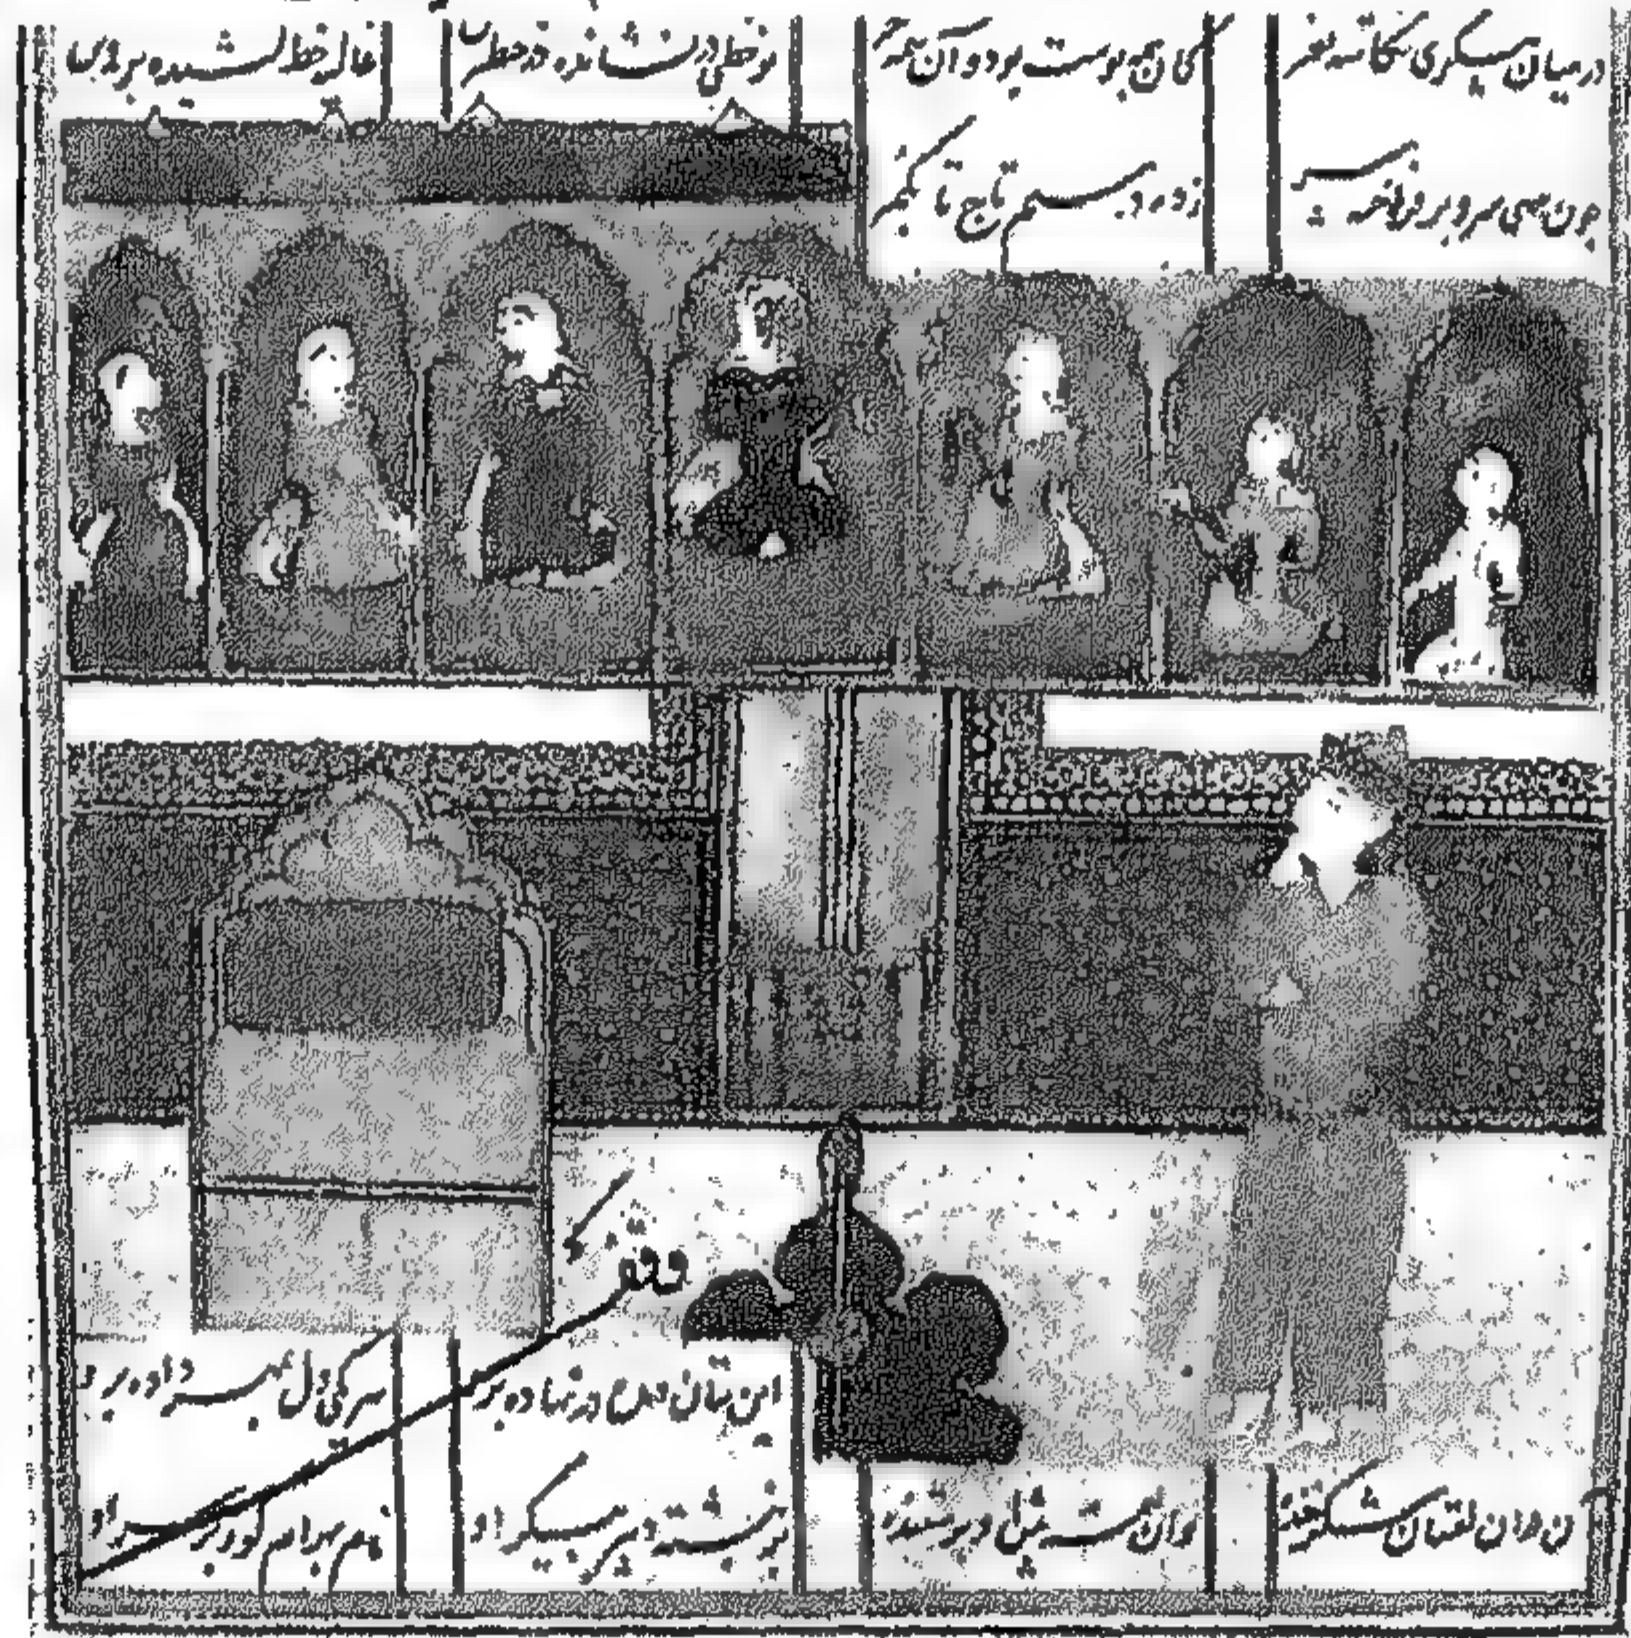 در میان پیکری نگاشته نغز کان همه پوست بود و آن همه مغز نوخطی در نشانده در غالیه خط کشیده بر
چون سهی سرو برفراخته سر زده در سیم تاج تا بکمر
این بتان دیده در نهاده برو هر یکی دل بمهر داده برو
دران لعبتان شکرخنده وان همه پیش او پرستنده برنبشته دبیر پیکر او نام بهرام گور بر سر او